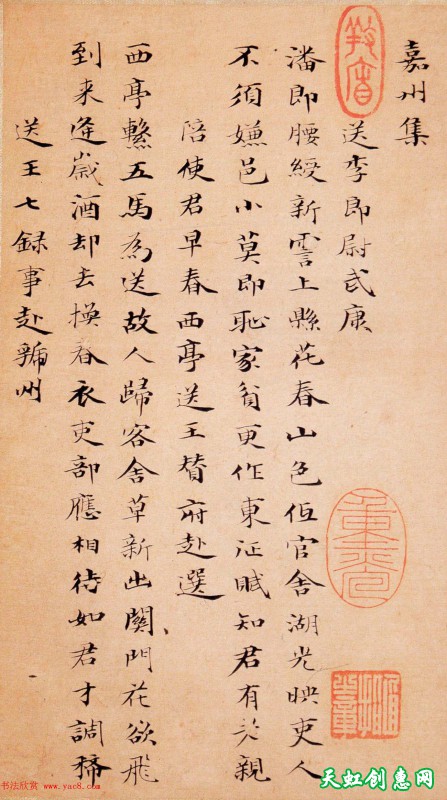 嘉州集
送李郎尉武康
潘郎腰綬新霅上縣花春山色低官舍湖光映吏人
不須嫌邑小莫即恥家貧更作東征賦知君有老親
陪使君早春西亭送王贊府赴選
西亭繫五馬為送故人歸客舍草新出關門花欲飛
到来逢歲酒却去換春衣吏部應相待如君才調稀
送王七録事赴虢州
书法欣赏 www.yac8.com
天虹创意网